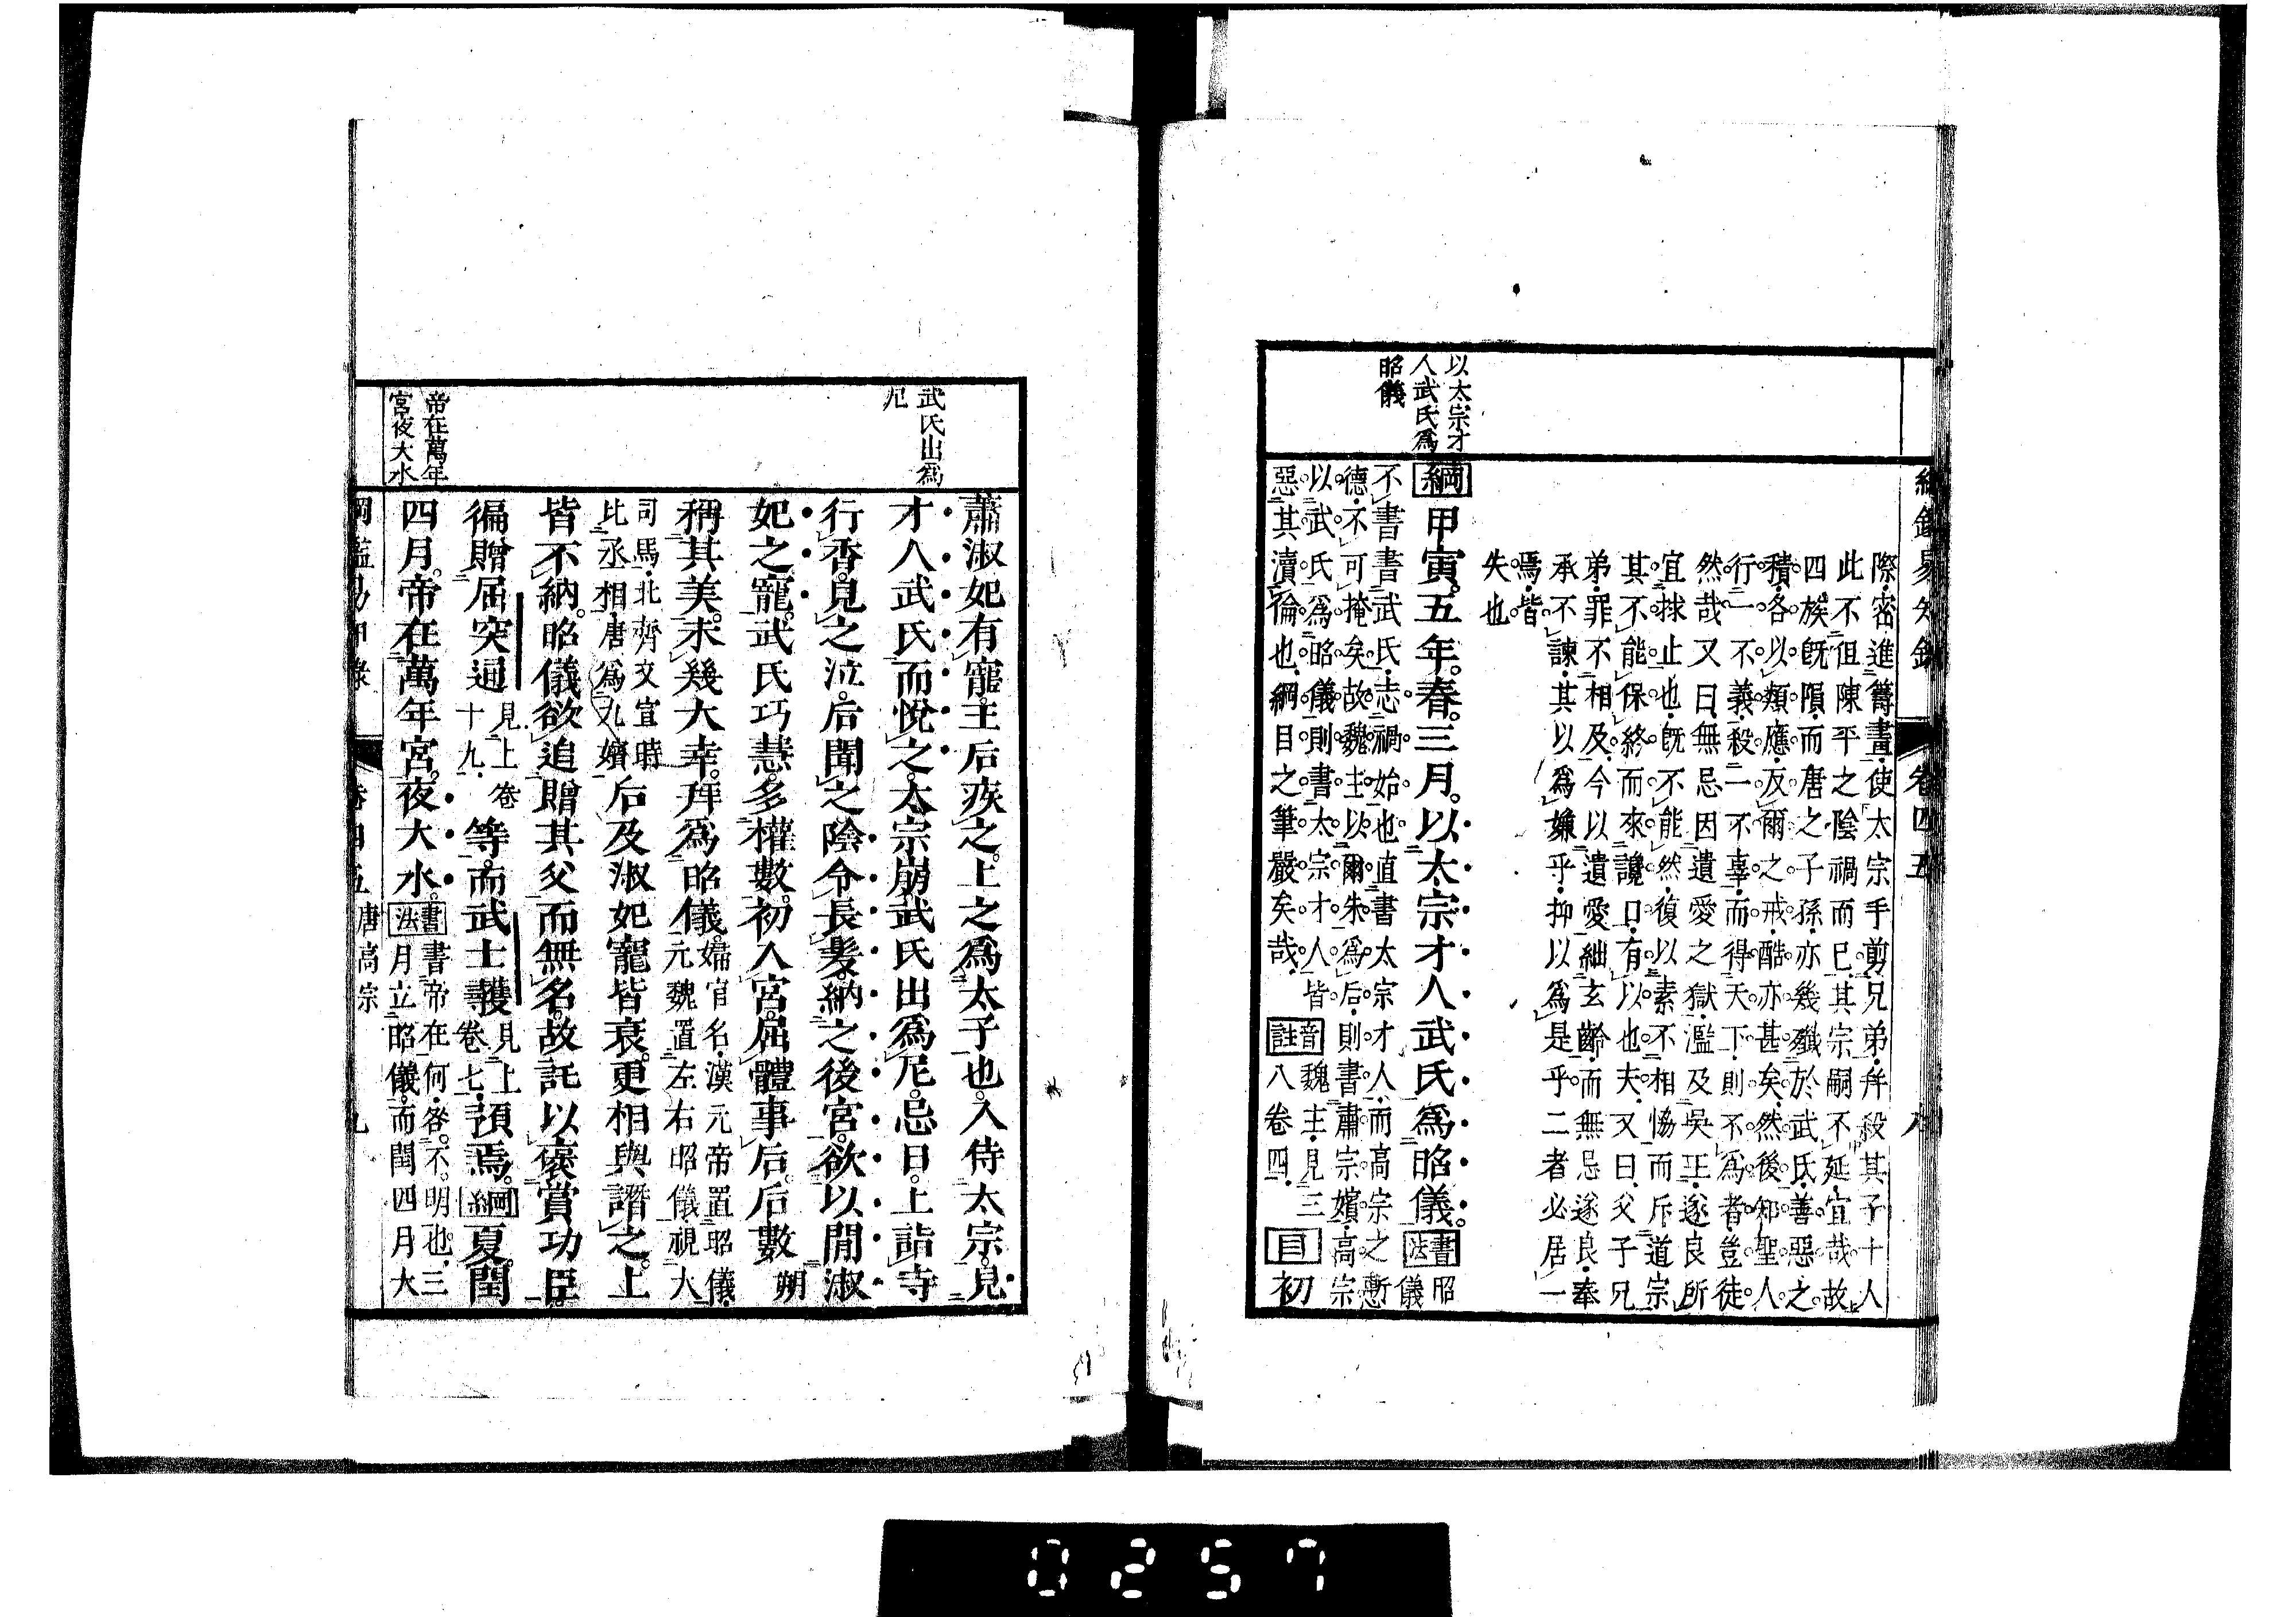 以太宗才
人武氏爲
昭儀
卷四五
八
際密進籌畫使太宗手剪兄弟并殺其子十人
此不但陳平之陰禍而已其宗嗣不延宜哉故
四族既隕而唐之子孫亦幾殲於武氏善惡之
積各以類應反爾之戒酷亦甚矣然後知聖人
行一不義殺一不辜而得天下則不爲者豈徒
然哉又曰無忌因遺愛之獄濫及吳王遂良所
宜捄止也既不能然復以素不相恊而斥道宗
其不能保終而來讒口有以也夫又曰父子兄
弟罪不相及今以遺愛絀玄齡而無忌遂良奉
承不諫其以爲嫌乎抑以爲是乎二者必居一
焉皆
失也
綱甲寅五年春三月以太宗才人武氏爲昭儀書法昭儀
不書書武氏志禍始也直書太宗才人而高宗之慙
德不可掩矣故魏主以爾朱爲后則書肅宗嬪高宗
以武氏爲昭儀則書太宗才人皆
惡其瀆倫也綱目之筆嚴矣哉
音註魏主見三
八卷四
目初
武氏出爲
尼
帝在萬年
宮夜大水
蕭淑妃有寵王后疾之上之爲太子也入侍太宗見
才人武氏而悅之太宗崩武氏出爲尼忌日上詣寺
行香見之泣后聞之陰令長髮納之後宮欲以閒淑
妃之寵武氏巧慧多權數初入宮屈體事后后數朔
稱其美未幾大幸拜爲昭儀
婦官名漢元帝置昭儀
元魏置左右昭儀視大
司馬北齊文宣時
比丞相唐爲九嬪
后及淑妃寵皆衰更相與譖之上
皆不納昭儀欲追贈其父而無名故託以褒賞功臣
徧贈屈突通
見上卷
十九
等而武士彠
見上
卷七
預焉綱夏閏
四月帝在萬年宮夜大水
書法書帝在何咎不明也三
月立昭儀而閏四月大
卷四五
唐高宗
九
0257